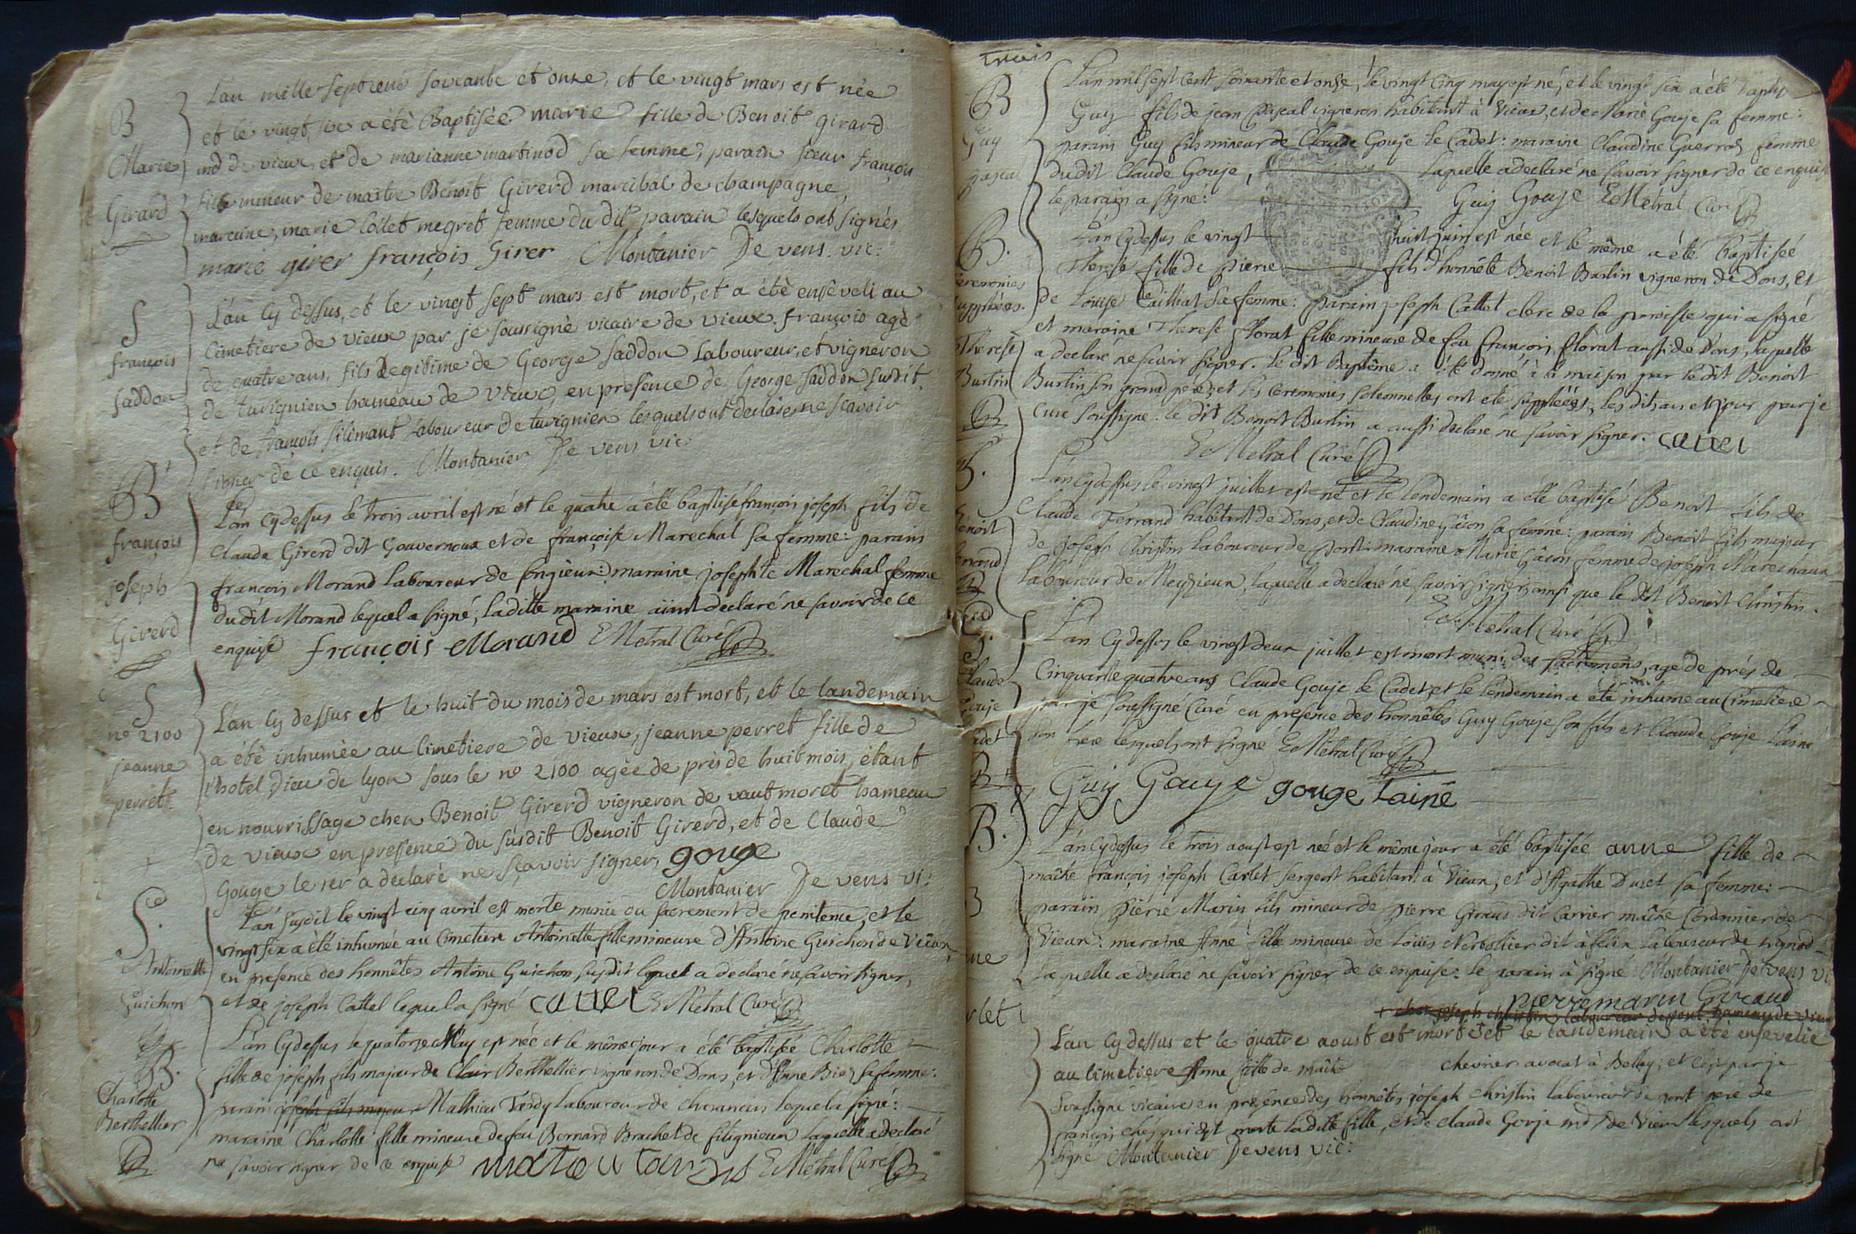 L'an mille septcent soixante et onze, et le vingt mars est née
et le vingt six a été Baptisée marie fille de Benoit girard
md de vieux, et de marianne martinod sa femme; parain sieur françois
fils mineur de maitre Benoit Girerd marcihal de champagne,
maraine, marie collet megret femme du dit parain lesquels ont signés
marie girer françois Girer Montanier De vens vic:
B
Marie
Girard
L'an cy dessus, et le vingt sept mars est mort, et a été enseveli au
cimetiere de vieux par je soussigné vicaire de vieux. françois agé
de quatre ans, fils Legitime de George saddon Laboureur, et vigneron
de turignien hameau de vieux, en presence de George saddon susdit,
et de françois silimant laboureur de turignien lesquels ont declarés ne sçavoir
signer de ce enquis. Montanier De vens vic:
S
françois
saddon
L'an cydessus le trois avril est né et le quatre a été baptisé françois joseph fils de
Claude Girerd dit Gouvernoux et de françoise Marechal sa femme: parain
françois Morand laboureur de songieu: maraine josephte Marechal femme
dudit Morand lequel a signé, ladite maraine aiant declaré ne savoir de ce
enquise françois Morand E Metral Curé
B
françois
joseph
Girerd
L'an cy dessus et le huit du mois de mars est mort, et le landemain
a été inhumée au Cimetiere de vieux, jeanne perret fille de
l'hotel Dieu de lyon sous le no 2100 agée de prés de huit mois, étant
en nourrissage chez Benoit Girerd vigneron de vautmoret hameau
de vieux en presence du susdit Benoit Girerd, et de Claude
Gouge le 1er a declaré ne sçavoir signer, gouge
Montanier De vens vi:
S
no 2100
jeanne
perret
L'an susdit le vingt cinq avril est morte munie du sacrement de penitence, et le
vingt six a été inhumée au Cimetiere Antoinette fille mineure d'Antoine Guichon de Vieux,
en presence des honnêtes Antoine Guichon susdit lequel a declaré ne savoir signer,
et de joseph Cattel lequel a signé cattel E Metral Curé
S.
Antoinette
Guichon
L'an Cydessus le quatorze May est née et le même jour a été baptisée Charlotte
fille de joseph fils majeur de Clair Berthellier vigneron de Dons, et d'Anne Biez sa femme:
parain joseph fils majeur Mathieu Tardy laboureur de charancin lequel a signé:
maraine Charlotte fille mineure de feu Bernard Brachet de fitignieux laquelle a declaré
ne savoir signer de ce enquise E Metral Curé
B.
Charlotte
Berthellier
trois
L'an mil sept cent soixante et onze, le vingt cinq may est né, et le vingt six a été baptisé
Guy fils de jean Pascal vigneron habitant à Vieux, et de Marie Gouje sa femme:
parain Guy fils mineur de Claude Gouje le Cadet: maraine Claudine Guerrod femme
dudit Claude Gouje, laquelle a declaré ne savoir signer de ce enquise
le parain a signé: Guy Gouje E Metral Curé
B
Guy
pascal
L'an Cydessus le vingt huit juin est née et le même a été baptisée
Therese fille de pierre fils d'honnête Benoit Burtin vigneron de Dons, et
de Louise Cailliat sa femme: parain joseph Cattel clerc de la paroisse qui a signé
et maraine Therese florat fille mineure de feu françois florat aussi de Dons, laquelle
a declaré ne savoir signer. le dit Baptême a été donné à la maison par le dit Benoit
Burtin son grand pere, et les ceremonies solemnelles ont été suppléés, les dits an et jour par je
curé soussigné. le dit Benoit Burtin a aussi declaré ne savoir signer. cattel
E Metral Curé
B.
ceremonies
suppléées.
Therese
Burtin
L'an Cydessus le vingt juillet est né et le lendemain a été baptisé Benoit fils de
Claude Ferrand habitant de Dons, et de Claudine Gâcon sa femme: parain Benoit fils majeur
de joseph Christin laboureur de pont: maraine Marie Gâcon femme de joseph
laboureur de Meyzieux, laquelle a declaré ne savoir signer, ainsi que le dit Benoit Christin.
E Metral Curé
B.
Benoit
ferrand
L'an Cydessus le vingt deux juillet est mort muni des sacremens, agé de prés de
Cinquante quatre ans Claude Gouje le Cadet, et le lendemain a été inhumé au Cimetiere
par je soussigné Curé en presence des honnêtes Guy Gouje son fils et Claude Gouje l'ainé
son frere lesquels ont signé E Metral Curé
Guy Gouje gouge lainé
S.
Claude
Gouje
Cadet
L'an Cydessus le trois aoust est née et le même jour a été baptisée anne fille de
maître françois joseph Carlet sergent habitant à Vieux, et d'Agathe Ducet sa femme:
parain Pierre Marin fils mineur de pierre Giraud dit Carrier maître Cordonnier de
Vieux: maraine Anne fille mineure de Louis Nerboltier dit à felix laboureur de
laquelle a declaré ne savoir signer de ce enquise: le parain a signé Montanier De vens vi
pierre marin Giraud
B.
Anne
Carlet
L'an cy dessus et le quatre aoust est morte et le landemain a été ensevelie
au cimetiere Anne fille de maître chevrier avocat à Belley, et ce par je
soussigné vicaire en presence des honnêtes joseph christin laboureur de pont pere de
françois chez qui est morte ladite fille, et de claude Gouje md de Vieux lesquels ont
signé Montanier De vens vic: